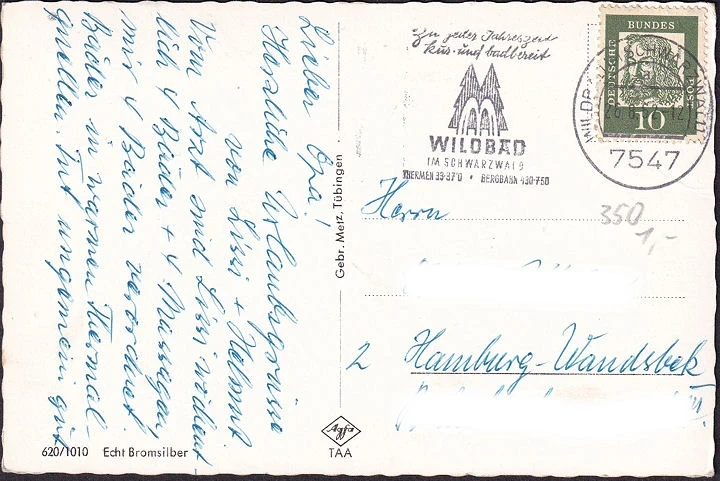 Lieber Opa!
Herzliche Urlaubsgrüsse
von Lissi + Helmut
Vom Arzt sind Lissi wöchent
lich 4 Bäder + 4 Massagen,
mir 4 Bäder verordnet.
Bäder in warmen Thermal-
quellen. Tut ungemein gut
620/1010 Echt Bromsilber
Gebr. Metz, Tübingen
Agfa
TAA
zu jeder Jahreszeit
kur- und badbereit
WILDBAD
IM SCHWARZWALD
THERMEN 33-37°C • BERGBAHN 430-750
DEUTSCHE BUNDESPOST
10
WILDBAD (SCHWARZWALD)
7547
350
1,-
Herrn
2 Hamburg-Wandsbek